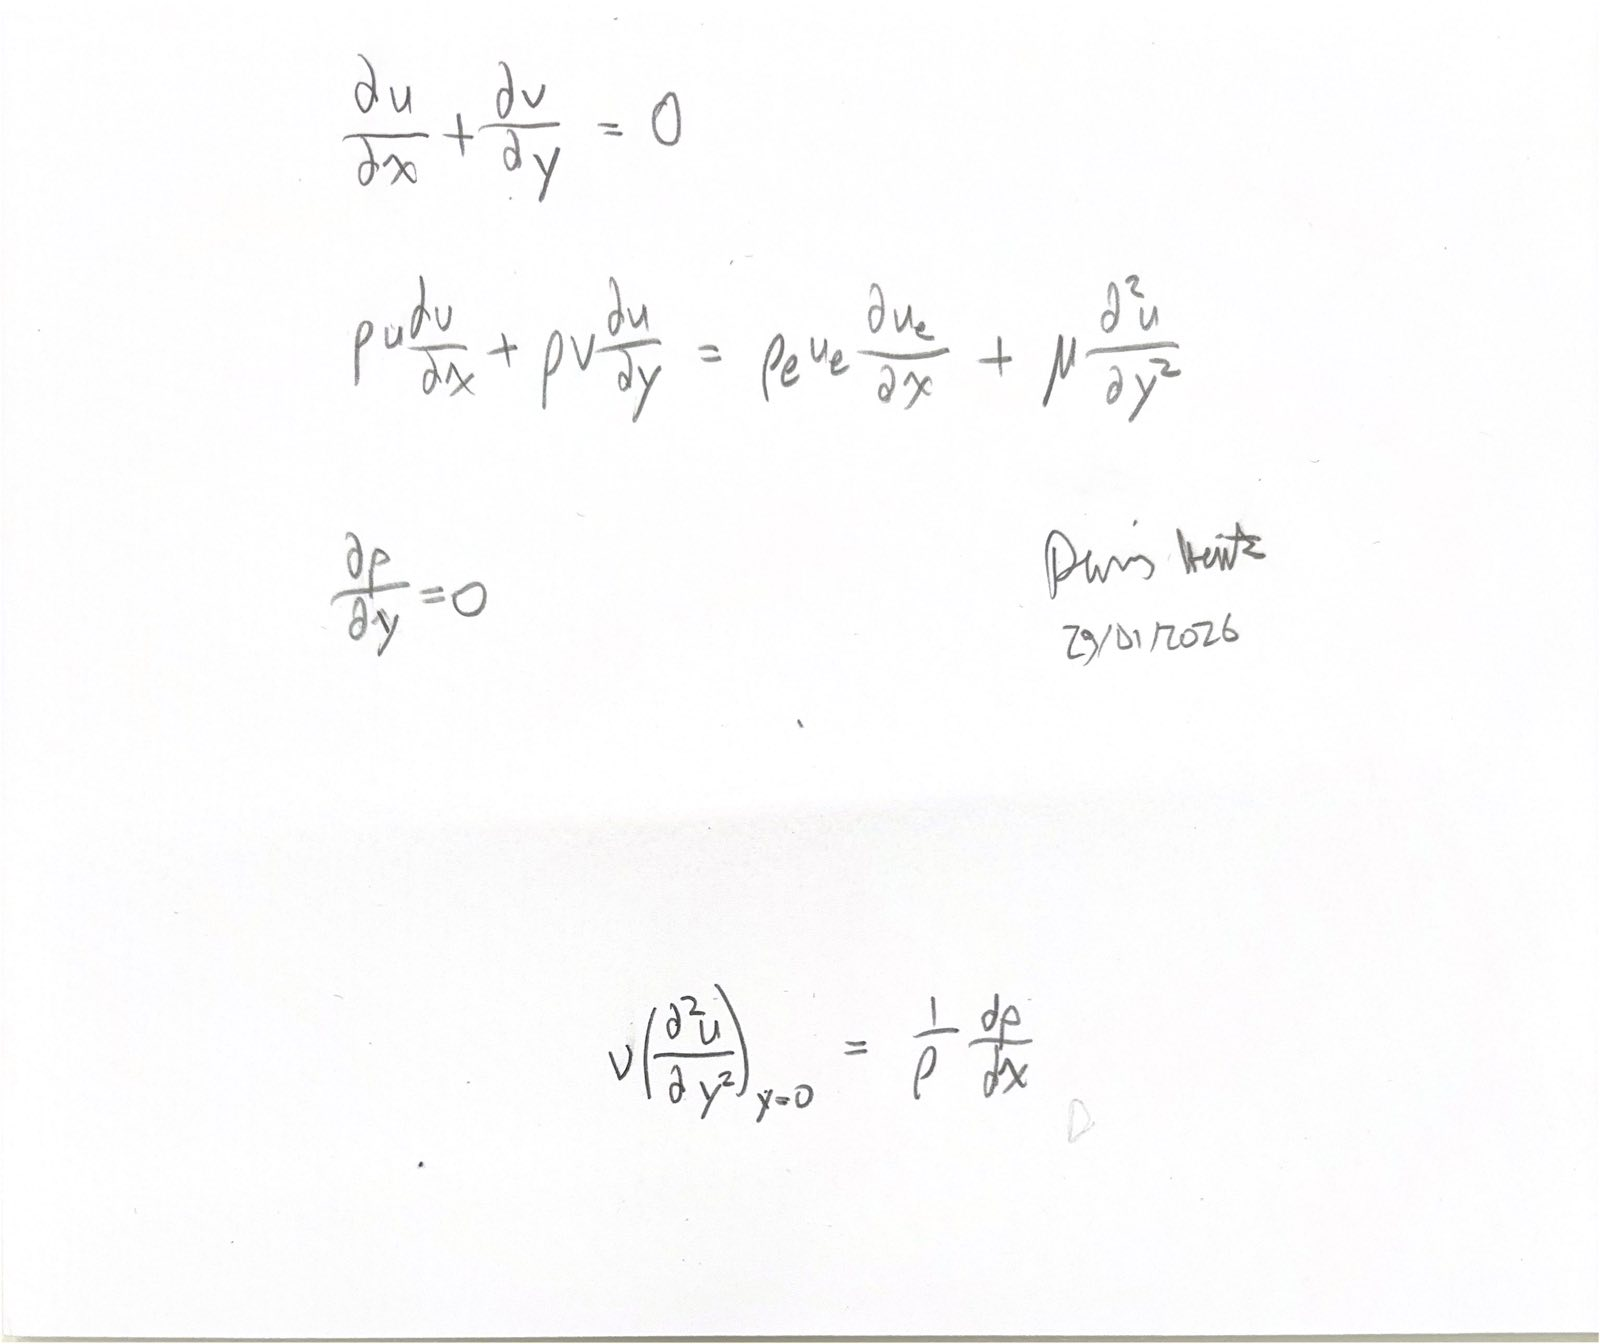 ∂u/∂x + ∂v/∂y = 0
ρu ∂u/∂x + ρv ∂u/∂y = ρₑuₑ ∂uₑ/∂x + μ ∂²u/∂y²
∂p/∂y = 0
29/01/2026
ν(∂²u/∂y²)y=0 = 1/ρ dp/dx